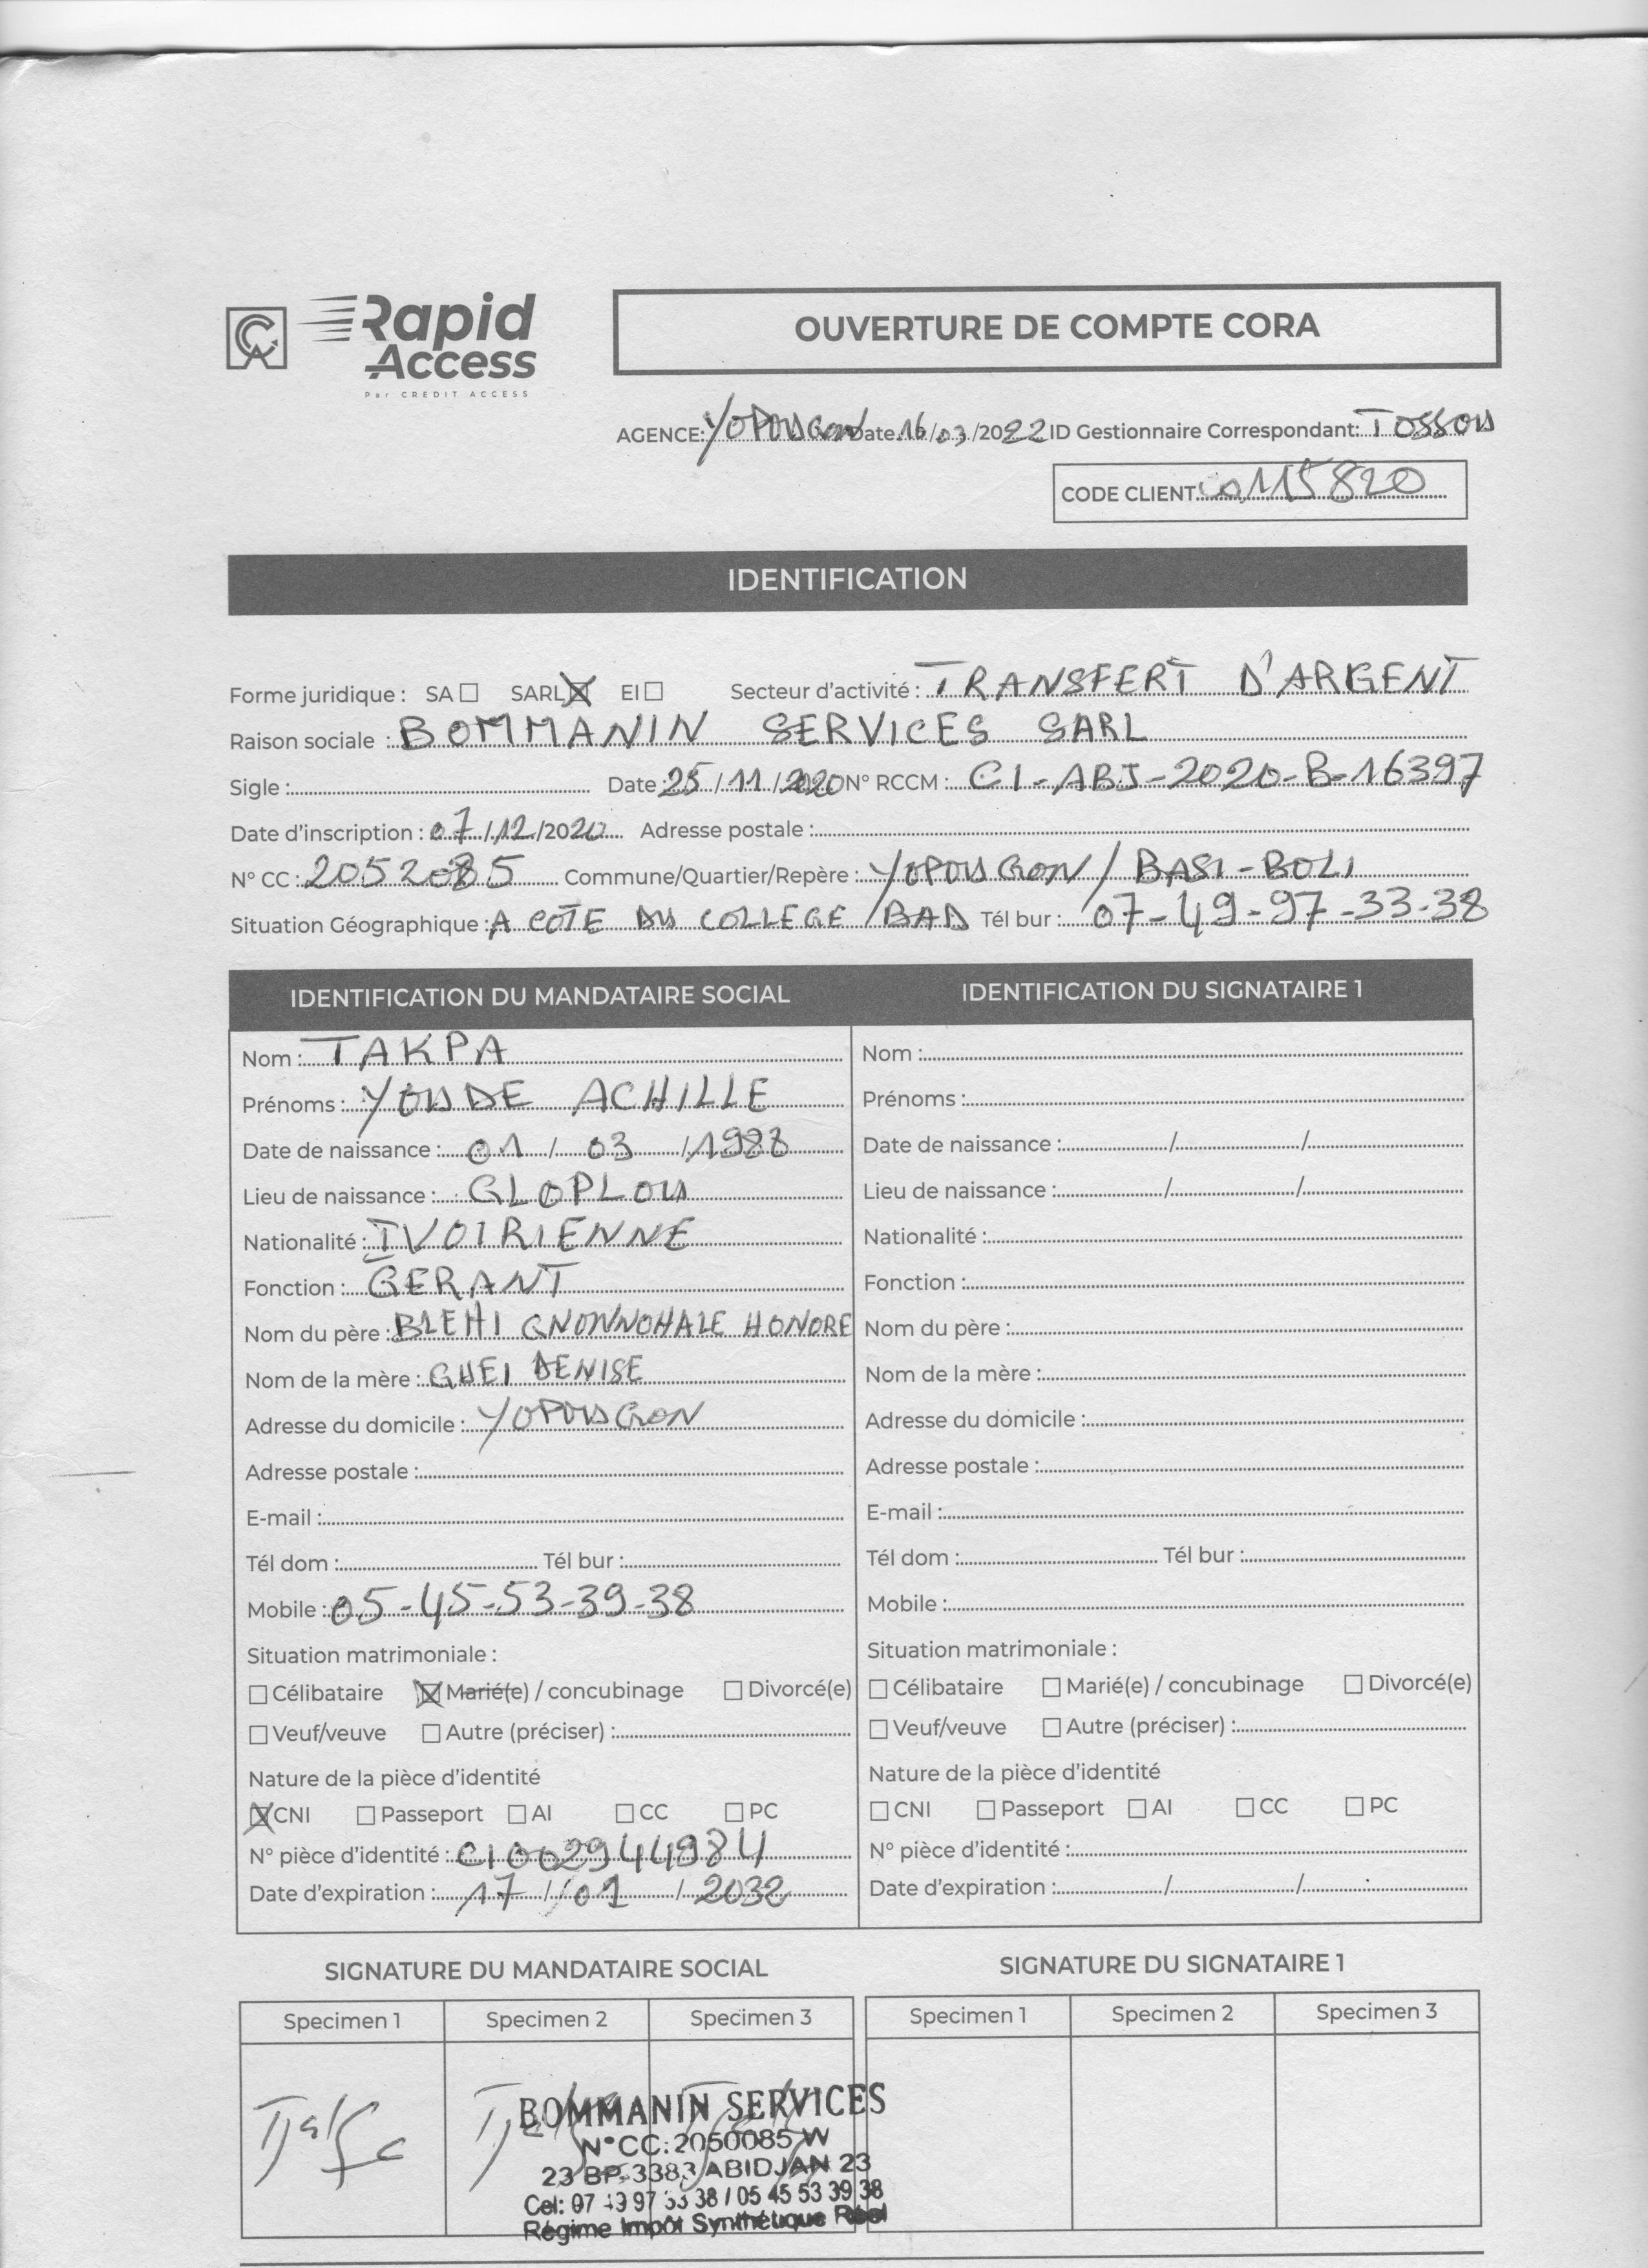 CA Rapid Access
Par CREDIT ACCESS
OUVERTURE DE COMPTE CORA
AGENCE: YOPOUGON Date 16/03/2022 ID Gestionnaire Correspondant: TOSSOU
CODE CLIENT 00115820
IDENTIFICATION
Forme juridique : SA ☐ SARL ☒ EI ☐ Secteur d'activité : TRANSFERT D'ARGENT
Raison sociale : BOMMANIN SERVICES SARL
Sigle : Date 25/11/2020 N° RCCM : CI-ABJ-2020-B-16397
Date d'inscription : 07/12/2020 Adresse postale :
N° CC : Commune/Quartier/Repère : YOPOUGON / BASI-BOLI
Situation Géographique : A COTE DU COLLEGE BAD Tél bur : 07-49-97-33-38
IDENTIFICATION DU MANDATAIRE SOCIAL IDENTIFICATION DU SIGNATAIRE 1
Nom : TAKPA Nom :
Prénoms : YOUDE ACHILLE Prénoms :
Date de naissance : 01 / 03 / 1988 Date de naissance : / /
Lieu de naissance : GLOPLOU Lieu de naissance : / /
Nationalité : IVOIRIENNE Nationalité :
Fonction : GERANT Fonction :
Nom du père : BLEHI GNONNOHALE HONORE Nom du père :
Nom de la mère : GUEI DENISE Nom de la mère :
Adresse du domicile : YOPOUGON Adresse du domicile :
Adresse postale : Adresse postale :
E-mail : E-mail :
Tél dom : Tél bur : Tél dom : Tél bur :
Mobile : 05-45-53-39-38 Mobile :
Situation matrimoniale : Situation matrimoniale :
☐ Célibataire ☒ Marié(e) / concubinage ☐ Divorcé(e) ☐ Célibataire ☐ Marié(e) / concubinage ☐ Divorcé(e)
☐ Veuf/veuve ☐ Autre (préciser) : ☐ Veuf/veuve ☐ Autre (préciser) :
Nature de la pièce d'identité Nature de la pièce d'identité
☒ CNI ☐ Passeport ☐ AI ☐ CC ☐ PC ☐ CNI ☐ Passeport ☐ AI ☐ CC ☐ PC
N° pièce d'identité : CI002944984 N° pièce d'identité :
Date d'expiration : 17 / 01 / 2032 Date d'expiration : / /
SIGNATURE DU MANDATAIRE SOCIAL SIGNATURE DU SIGNATAIRE 1
Specimen 1 Specimen 2 Specimen 3 Specimen 1 Specimen 2 Specimen 3
BOMMANIN SERVICES
N°CC: 2050085 W
23 BP 3383 ABIDJAN 23
Cel: 07 49 97 33 38 / 05 45 53 39 38
Régime Impôt Synthétique Réel